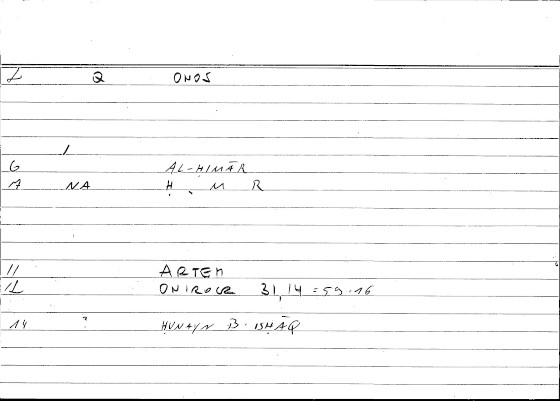 2 Q ONOS
1
6 AL-ḤIMĀR
A NA Ḥ . M R
11 ARTEM
12 ONIROCR 31,14 = 59.16
14 ? ḤUNAYN B. ISḤĀQ